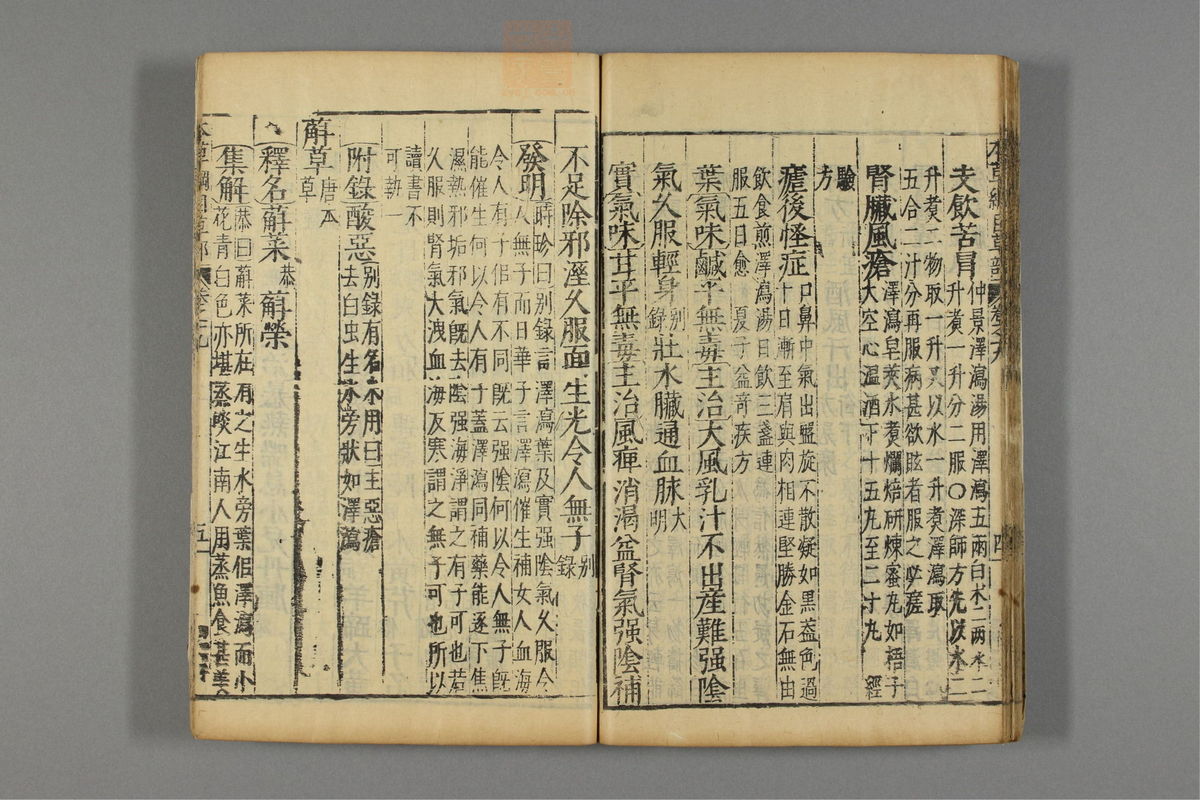 本草綱目草部 卷之十九 四
夫飲苦冒 仲景澤瀉湯用澤瀉五兩白朮二兩水二
升煑一升分二服〇深師方先以水二
升煑二物取一升又以水一升煑澤瀉取
五合二汁分再服病甚欲眩者服之必瘥
腎臟風瘡 澤瀉皂莢水煑爛焙研煉蜜丸如梧子
大空心溫酒下十五丸至二十丸 經
驗方
瘧後怪症 口鼻中氣出盤旋不散疑如黑葢色過
十日漸至肩與肉相連堅勝金石無由
飲食煎澤瀉湯日飲三盞連
服五日愈 夏子益奇疾方
葉 氣味鹹平無毒主治大風乳汁不出產難强陰
氣久服輕身 别錄 壯水臟通血脉 大明
實 氣味甘平無毒主治風痺消渴益腎氣强陰補
不足除邪溼久服面生光令人無子 别錄
發明 時珍曰别錄言澤瀉葉及實强陰氣久服令
人無子而日華子言澤瀉催生補女人血海
令人有子佀有不同既云强陰何以令人無子既
能催生何以令人有子葢澤瀉同補藥能逐下焦
濕熱邪垢邪氣既去陰强海淨謂之有子可也若
久服則腎氣大洩血海反寒謂之無子可也所以
讀書不
可執一
附錄 酸惡 别錄有名未用曰主惡瘡
去白虫生水旁狀如澤瀉
蔛草 唐本草
釋名 蔛菜 恭 蔛榮
集解 恭曰蔛菜所在有之生水旁葉佀澤瀉而小
花青白色亦堪蒸啖江南人用蒸魚食甚美
本草綱目草部 卷之十九 五